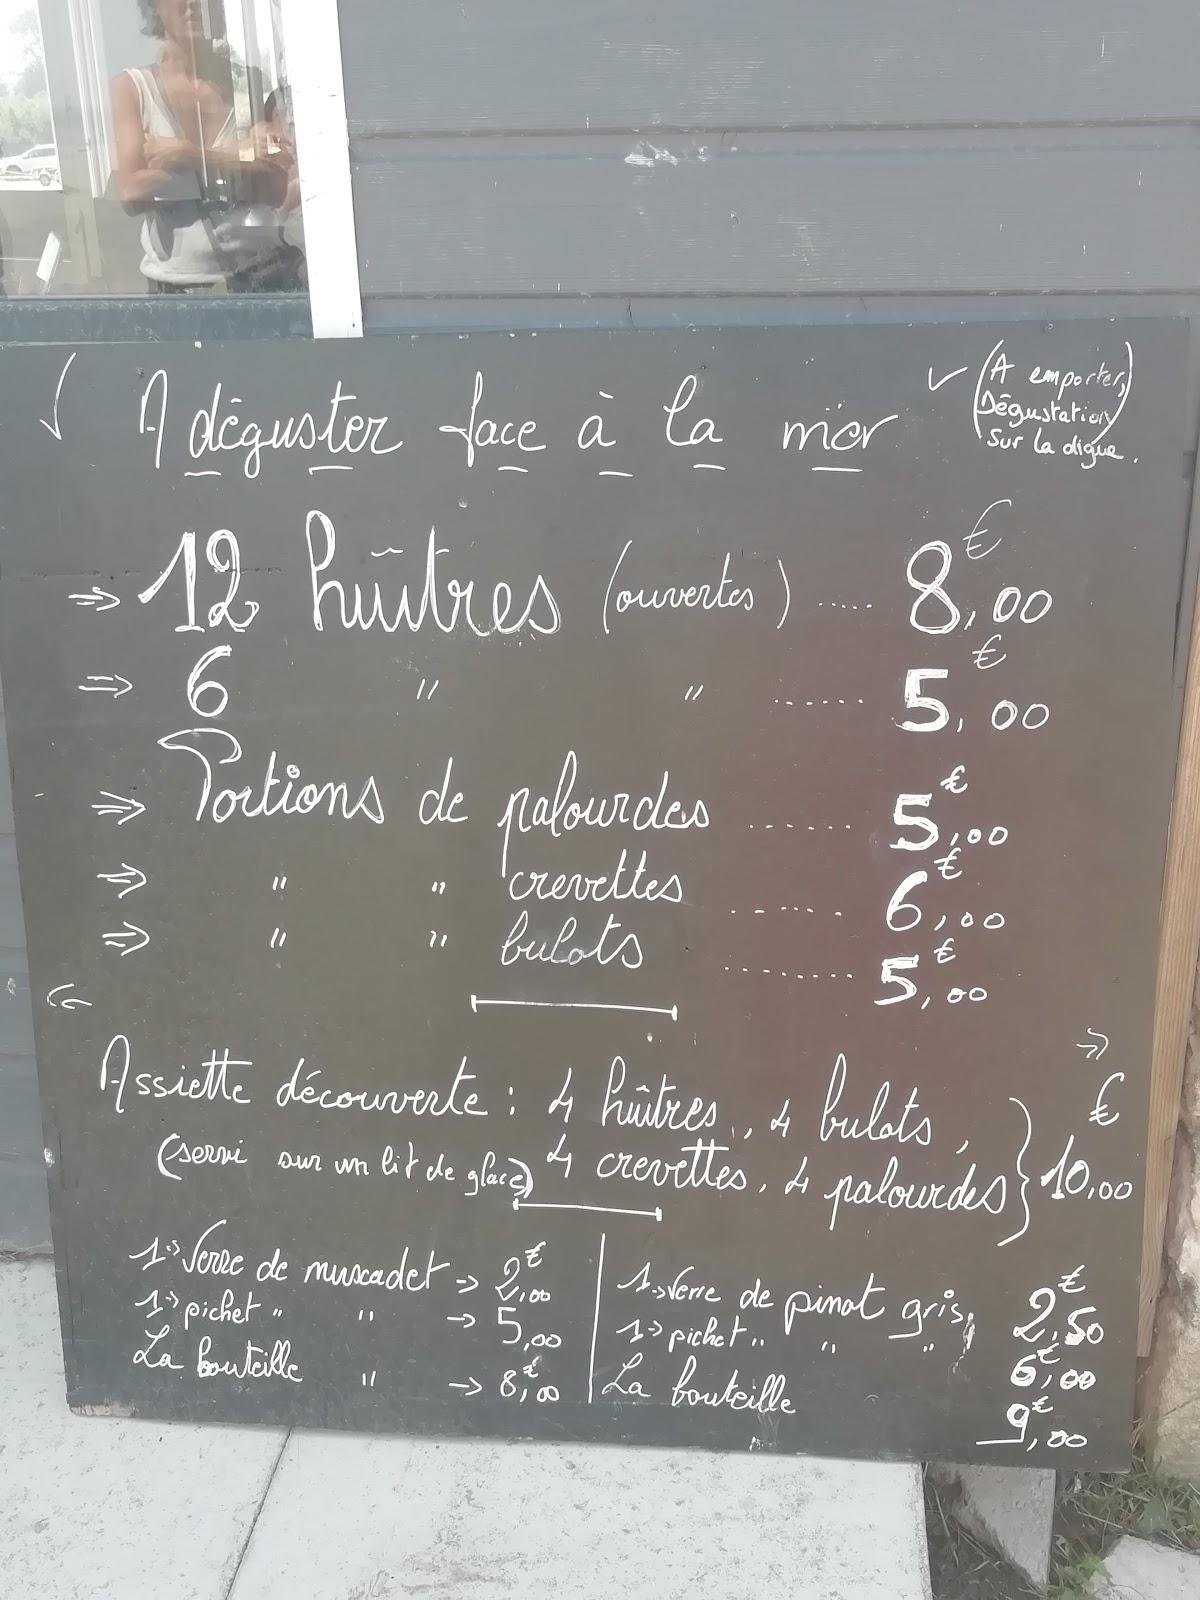 A déguster face à la mer
(A emporter,
Dégustation
sur la digue.)
⇒ 12 huîtres (ouvertes) ..... 8,00 €
⇒ 6 " " ...... 5,00 €
⇒ Portions de palourdes ...... 5,00 €
⇒ " " crevettes ...... 6,00 €
⇒ " " bulots ......... 5,00 €
Assiette découverte : 4 huîtres, 4 bulots,
(servi sur un lit de glace) 4 crevettes, 4 palourdes } 10,00 €
1 → Verre de muscadet → 2,00 €
1 → pichet " " → 5,00
La bouteille " → 8,00 €
1 → Verre de pinot gris, 2,50 €
1 → pichet " " " 6,00 €
La bouteille 9,00 €